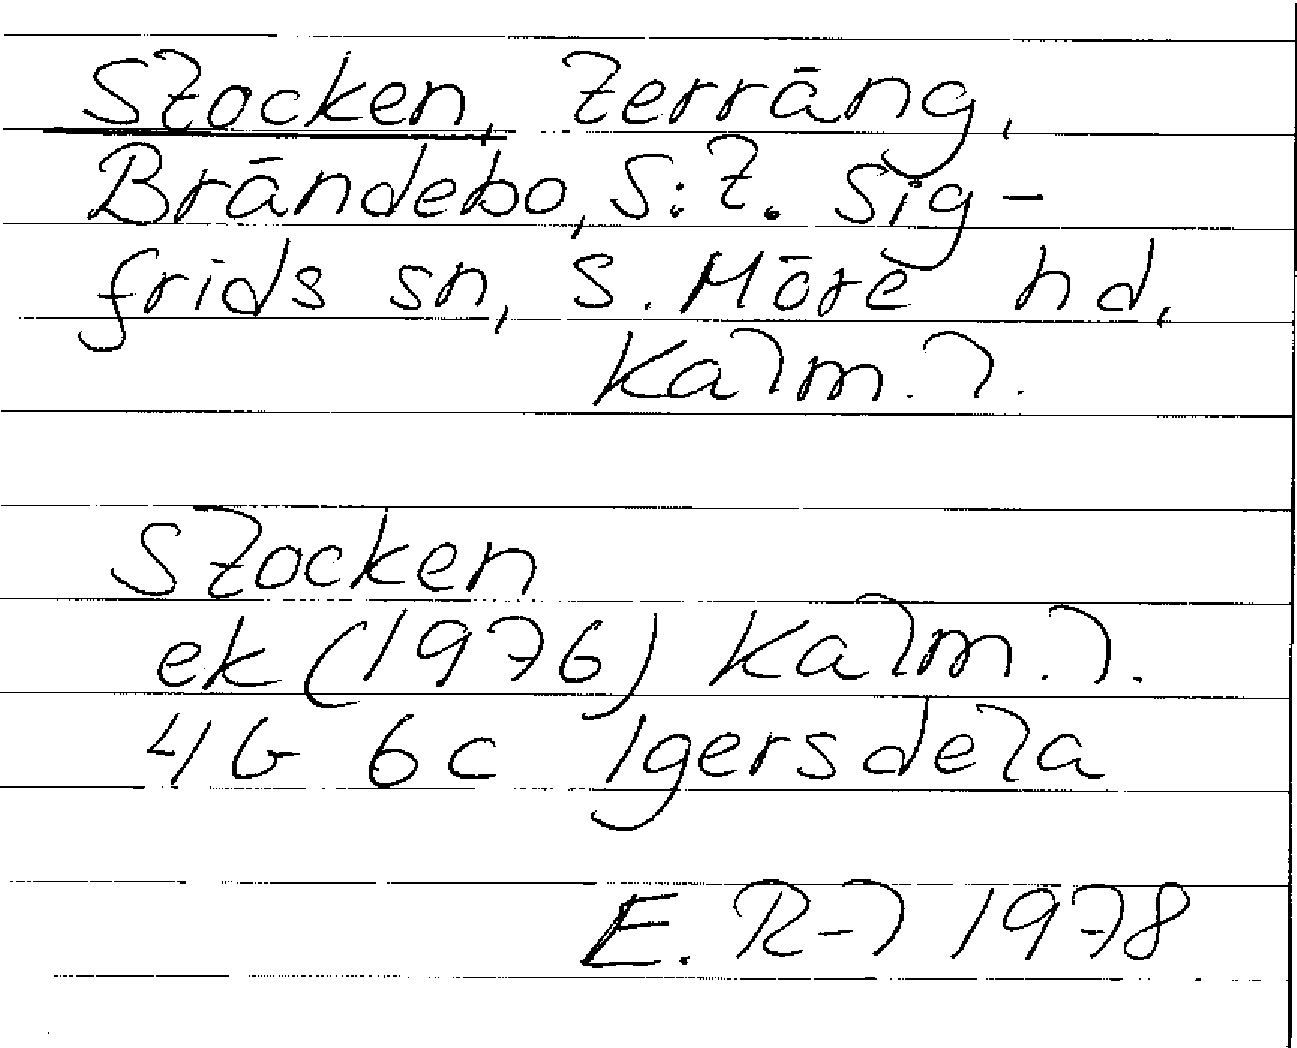 Stocken, terräng,
Brändebo, S:t. Sig-
frids sn, S. Möre hd,
Kalm. l.
Stocken
ek (1976) Kalm. l.
4G 6c Igersdela
E. R-l 1978